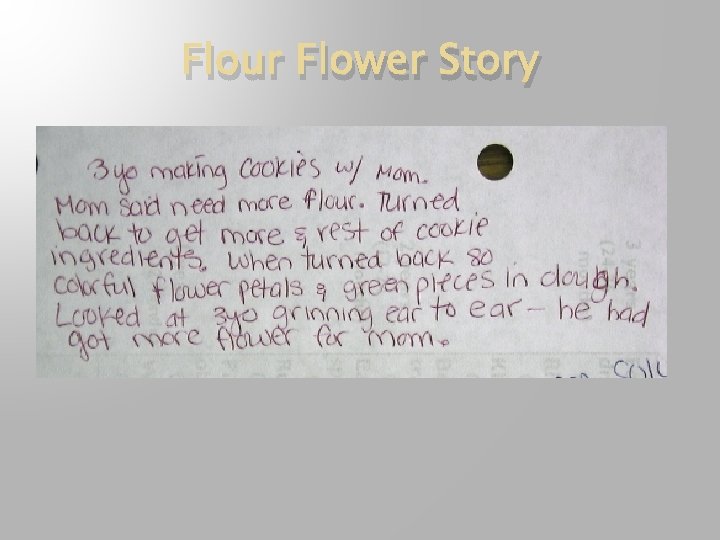 Flour Flower Story
3yo making cookies w/ Mom.
Mom said need more flour. Turned
back to get more & rest of cookie
ingredients. When turned back so
colorful flower petals & green pieces in dough.
Looked at 3yo grinning ear to ear – he had
got more flower for mom.